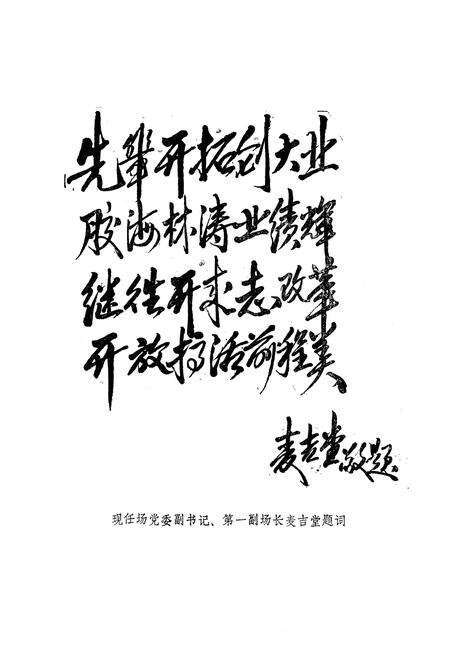 先辈开拓创大业
胶海林涛业绩辉
继往开来志改革
开放搞活前程美
麦吉堂敬题
现任场党委副书记、第一副场长麦吉堂题词